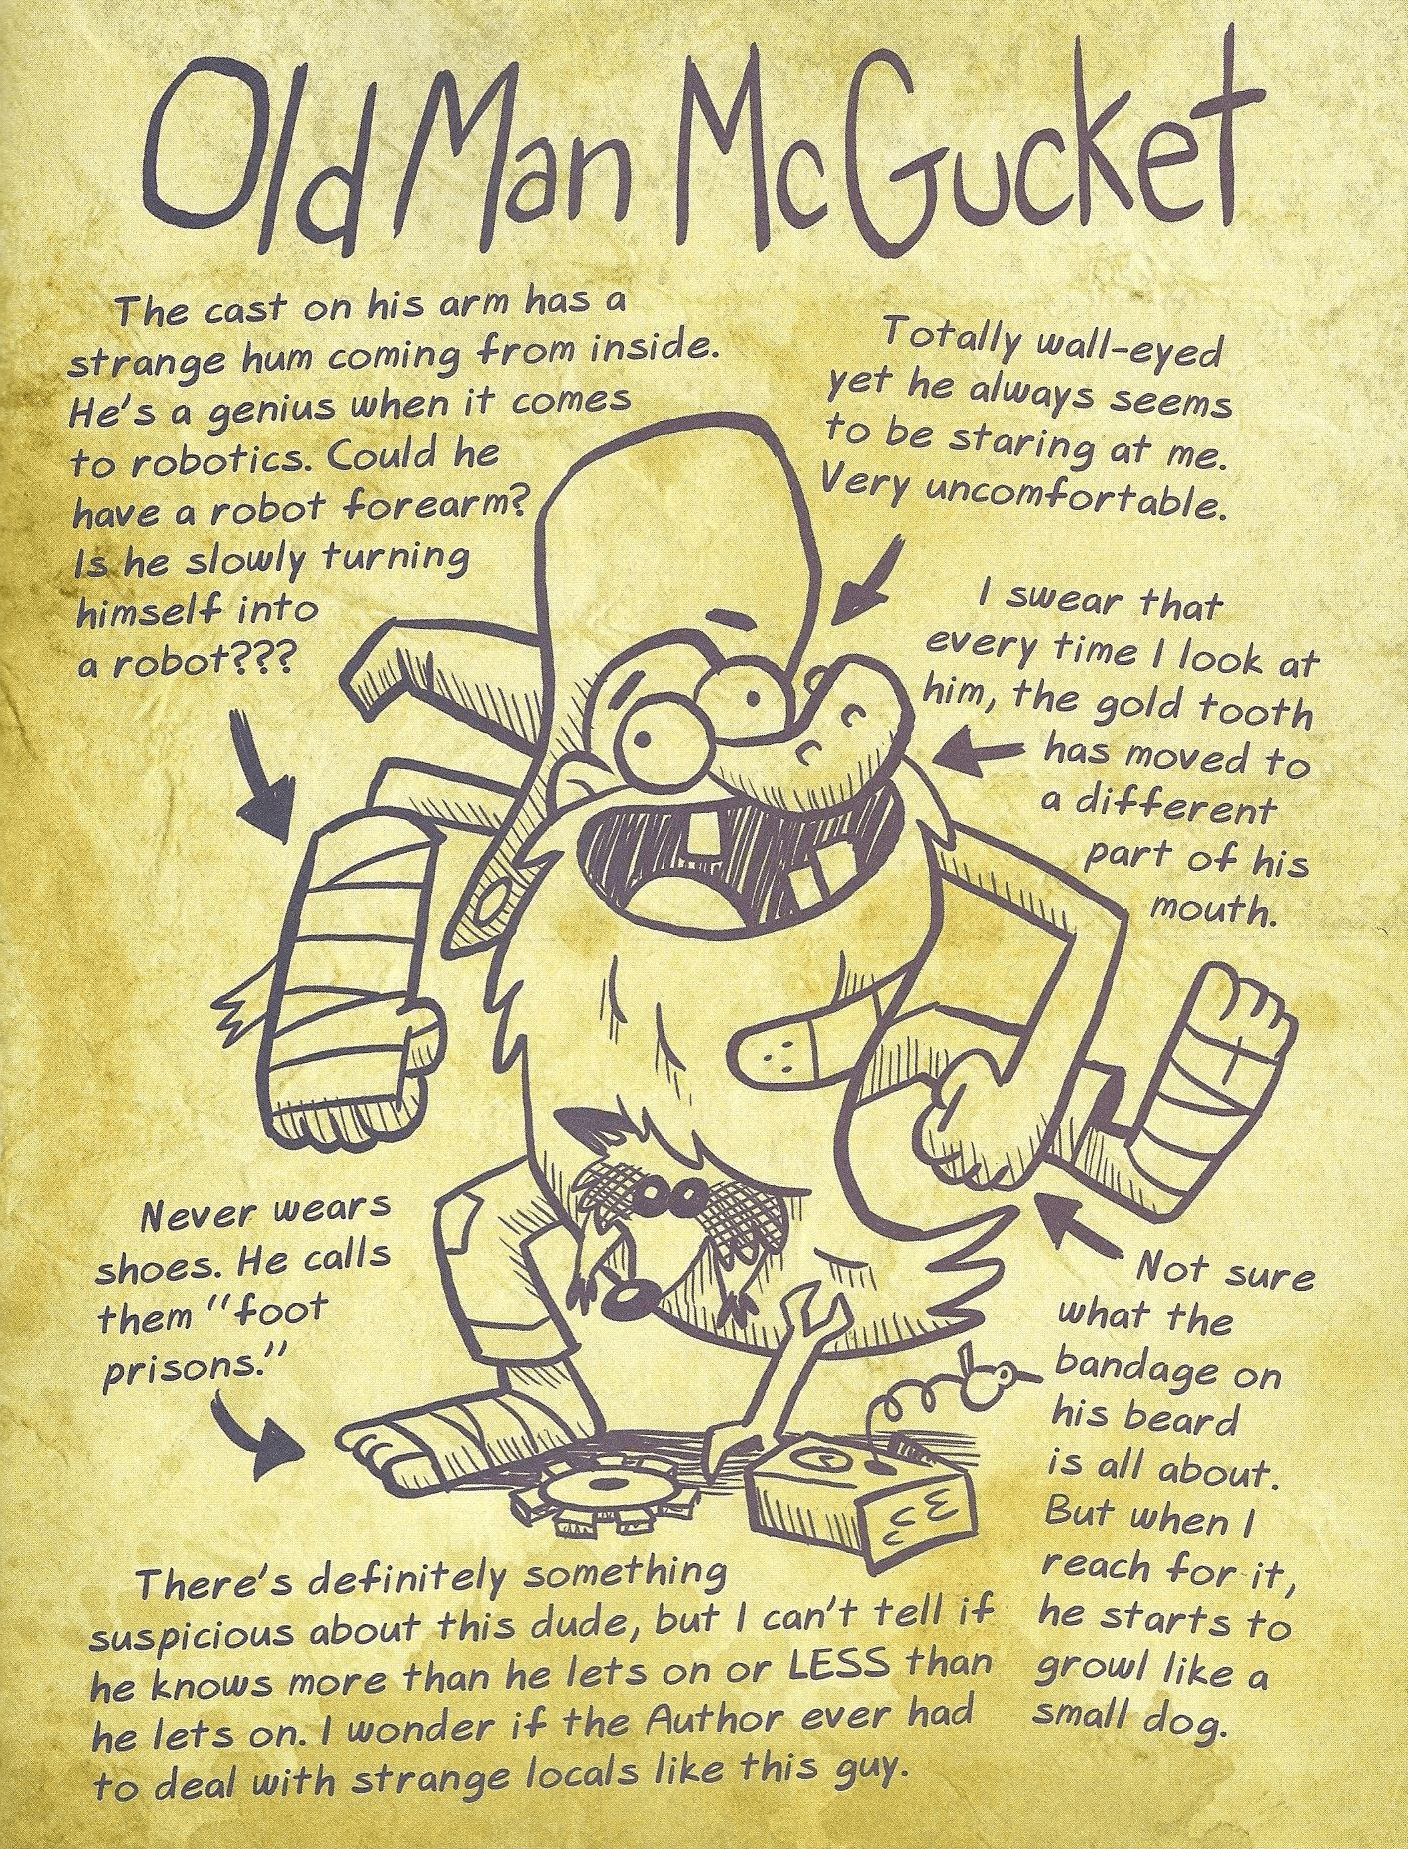 Old Man McGucket
The cast on his arm has a
strange hum coming from inside.
He's a genius when it comes
to robotics. Could he
have a robot forearm?
Is he slowly turning
himself into
a robot???
Totally wall-eyed
yet he always seems
to be staring at me.
Very uncomfortable.
I swear that
every time I look at
him, the gold tooth
has moved to
a different
part of his
mouth.
Never wears
shoes. He calls
them "foot
prisons."
Not sure
what the
bandage on
his beard
is all about.
But when I
reach for it,
he starts to
growl like a
small dog.
There's definitely something
suspicious about this dude, but I can't tell if
he knows more than he lets on or LESS than
he lets on. I wonder if the Author ever had
to deal with strange locals like this guy.